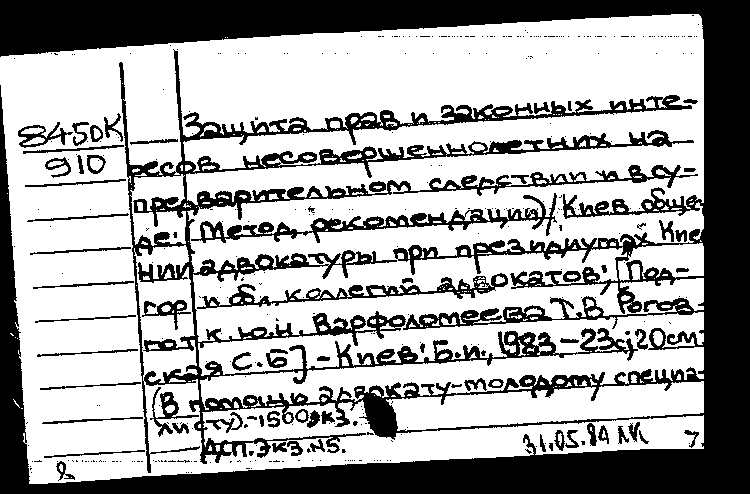 8450К
910
Защита прав и законных инте-
ресов несовершеннолетних на
предварительном следствии и в су-
де: (Метод. рекомендации) / Киев. обще-
нии адвокатуры при президиумах Киев
гор и обл. коллегий адвокатов; [Под-
гот. к.ю.н. Варфоломеева Т.В, Рогов-
ская С.Б]. - Киев: Б.и., 1983 - 23с; 20см -
(В помощь адвокату-молодому специа-
листу). - 1500экз.
ДСП. Экз. N5.
31.05.84 NK